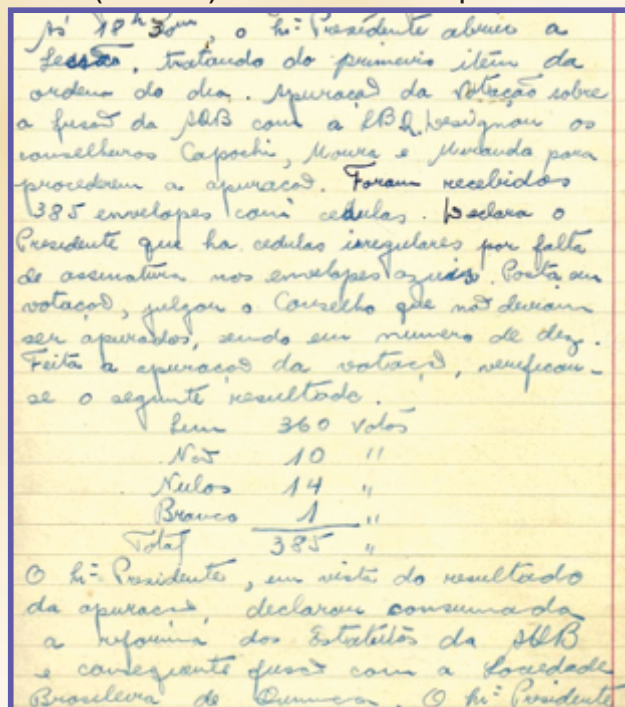 Às 18h30m, o Snr. Presidente abriu a
sessão, tratando do primeiro item da
ordem do dia. Apuração da Votação sobre
a fusão da AQB com a SBQ. Designou os
conselheiros Capochi, Moura e Miranda para
procederem a apuração. Foram recebidos
385 envelopes com cedulas. Declara o
Presidente que ha cedulas irregulares por falta
de assinatura nos envelopes azuis. Posta em
votação, julgou o Conselho que não deviam
ser apurados, sendo em numero de dez.
Feita a apuração da votação, verificou-
se o seguinte resultado.
Sim 360 votos
Não 10 "
Nulos 14 "
Branco 1 "
Total 385 "
O Snr. Presidente, em vista do resultado
da apuração, declarou consumada
a reforma dos Estatutos da AQB
e consequente fusão com a Sociedade
Brasileira de Quimica. O Snr. Presidente